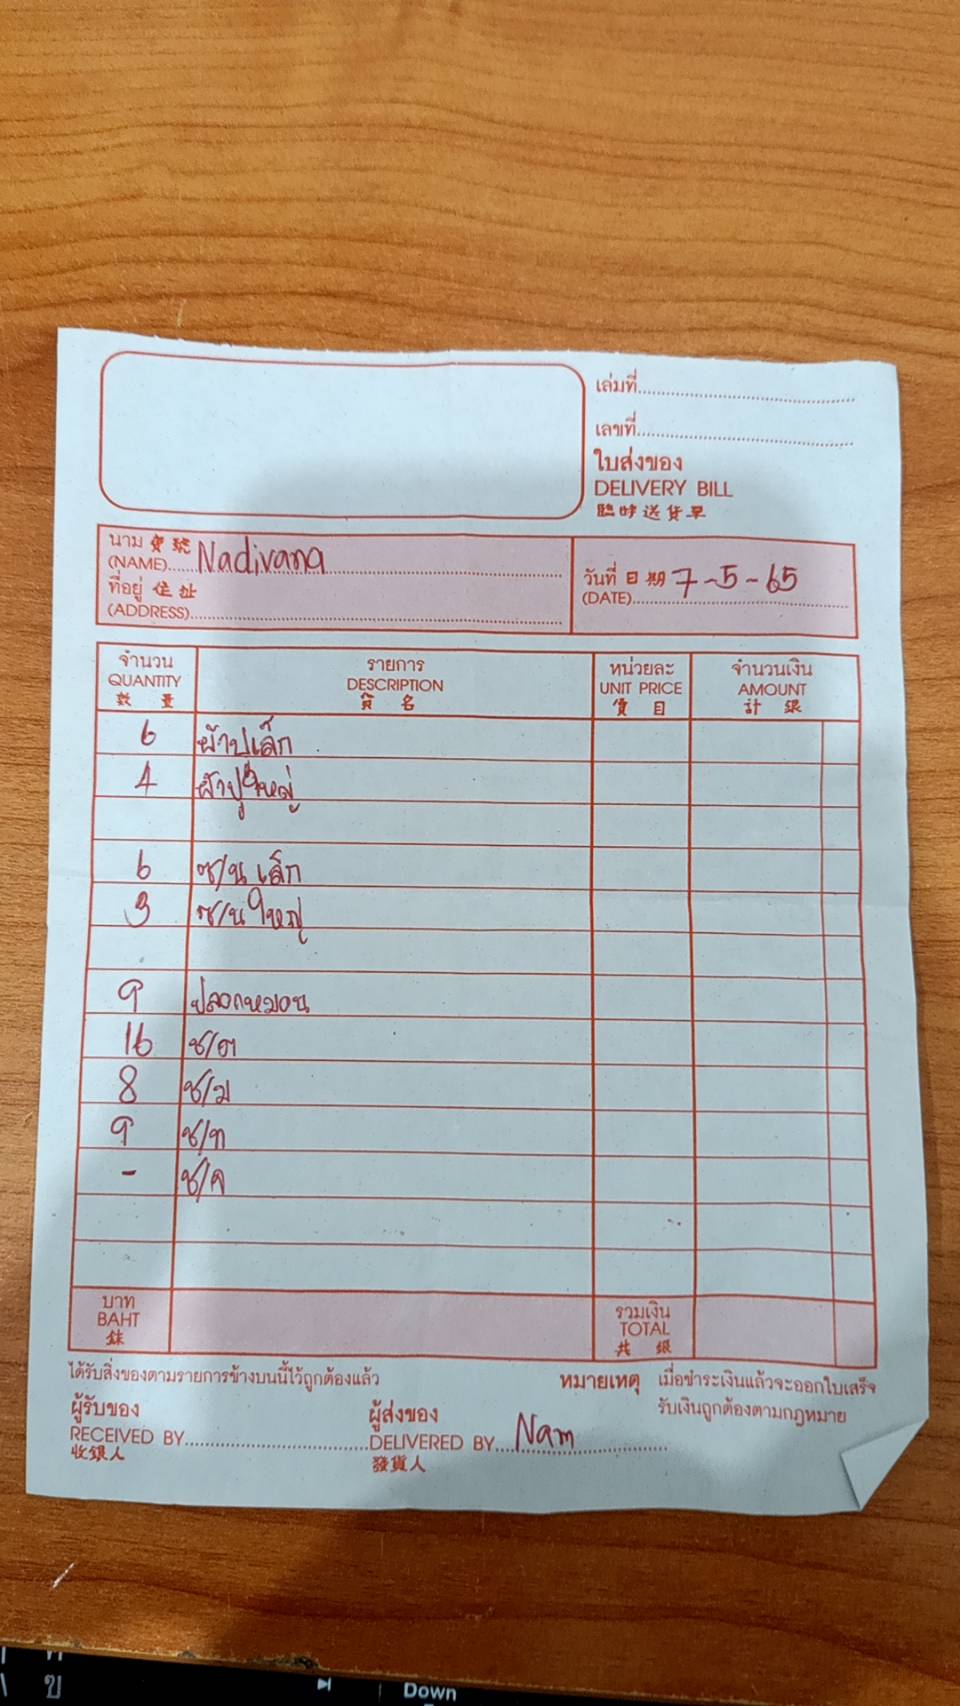 เล่มที่
เลขที่
ใบส่งของ
DELIVERY BILL
臨時送货单
นาม 寶號
(NAME) Nadivana
ที่อยู่ 住址
(ADDRESS)
วันที่ 日期 7-5-65
(DATE)
จำนวน รายการ หน่วยละ จำนวนเงิน
QUANTITY DESCRIPTION UNIT PRICE AMOUNT
數量 貨名 價目 計銀
6 ผ้าปูเล็ก
4 ผ้าปูใหญ่
6 ซ/น เล็ก
3 ซ/น ใหญ่
9 ปลอกหมอน
16 ช/ต
8 ช/ม
9 ช/ท
- ช/ค
บาท รวมเงิน
BAHT TOTAL
銖 共銀
ได้รับสิ่งของตามรายการข้างบนนี้ไว้ถูกต้องแล้ว
หมายเหตุ เมื่อชำระเงินแล้วจะออกใบเสร็จ
รับเงินถูกต้องตามกฎหมาย
ผู้รับของ ผู้ส่งของ
RECEIVED BY DELIVERED BY Nam
收銀人 發貨人
ข
Down